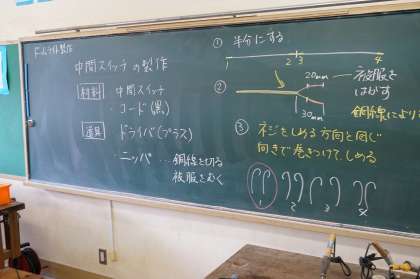 ドームライト製作
中間スイッチの製作
材料 中間スイッチ
・コード(黒)
道具 ドライバ(プラス)
・ニッパ …銅線を切る
被服をむく
① 半分にする
1 2 3 4
② 20mm
30mm
被服を
はがす
銅線によリ
③ ネジをしめる方向と同じ
向きで巻きつけて、しめる
1 2 3 4